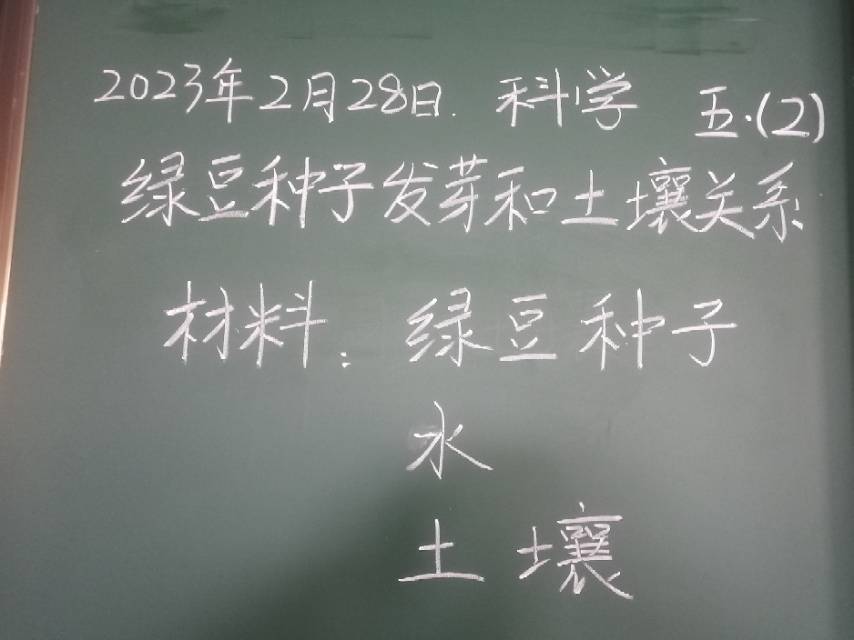 2023年2月28日. 科学 五·(2)
绿豆种子发芽和土壤关系
材料: 绿豆种子
水
土壤